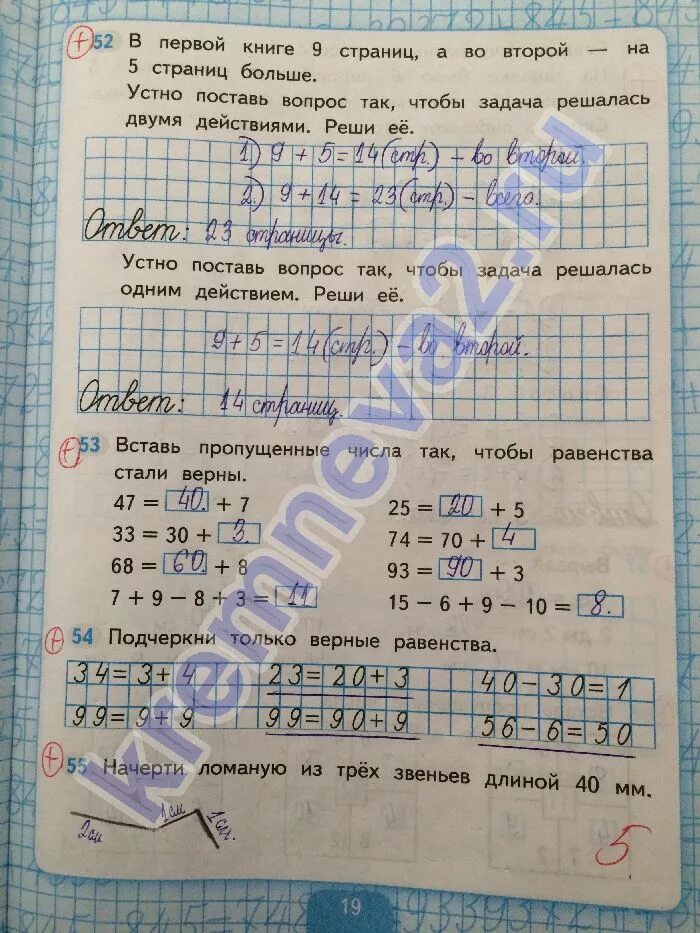 52 В первой книге 9 страниц, а во второй — на
5 страниц больше.
Устно поставь вопрос так, чтобы задача решалась
двумя действиями. Реши её.
1) 9 + 5 = 14 (стр.) – во второй.
2) 9 + 14 = 23 (стр.) – всего.
Ответ: 23 страницы.
Устно поставь вопрос так, чтобы задача решалась
одним действием. Реши её.
9 + 5 = 14 (стр.) – во второй.
Ответ: 14 страниц.
53 Вставь пропущенные числа так, чтобы равенства
стали верны.
47 = 40 + 7 25 = 20 + 5
33 = 30 + 3 74 = 70 + 4
68 = 60 + 8 93 = 90 + 3
7 + 9 − 8 + 3 = 11 15 − 6 + 9 − 10 = 8
54 Подчеркни только верные равенства.
34=3+4 23=20+3 40−30=1
99=9+9 99=90+9 56−6=50
55 Начерти ломаную из трёх звеньев длиной 40 мм.
2см 1см 1см.
5
19
kremneva2.ru